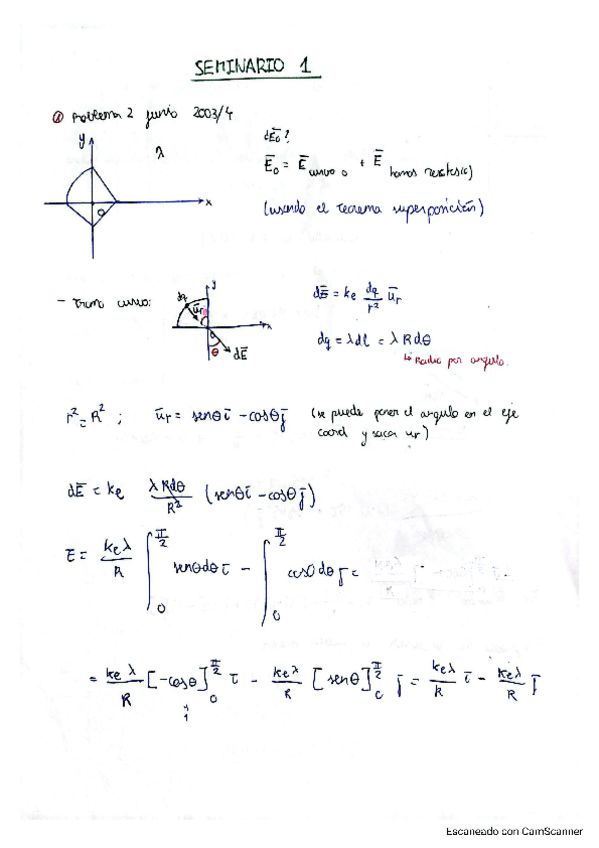 SEMINARIO 1
① Problema 2 junio 2003/4
y
λ
x
O
dE̅o?
E̅o = E̅ curvo o + E̅ tramos rectos(o)
(usando el teorema superposición)
- Tramo curvo:
dq
y
u̅r
x
θ
dE̅
dE̅ = ke dq/r² u̅r
dq = λdl = λ R dθ
↳ Radio por angulo.
r² = R² ; u̅r = senθ i̅ - cosθ j̅ (se puede poner el angulo en el eje
coord y sacar ur)
dE̅ = ke λRdθ/R² (senθ i̅ - cosθ j̅)
E = keλ/R ∫₀^(π/2) senθdθ i̅ - ∫₀^(π/2) cosθdθ j̅ =
= keλ/R [-cosθ]₀^(π/2) i̅ - keλ/R [senθ]₀^(π/2) j̅ = keλ/R i̅ - keλ/R j̅
1
Escaneado con CamScanner